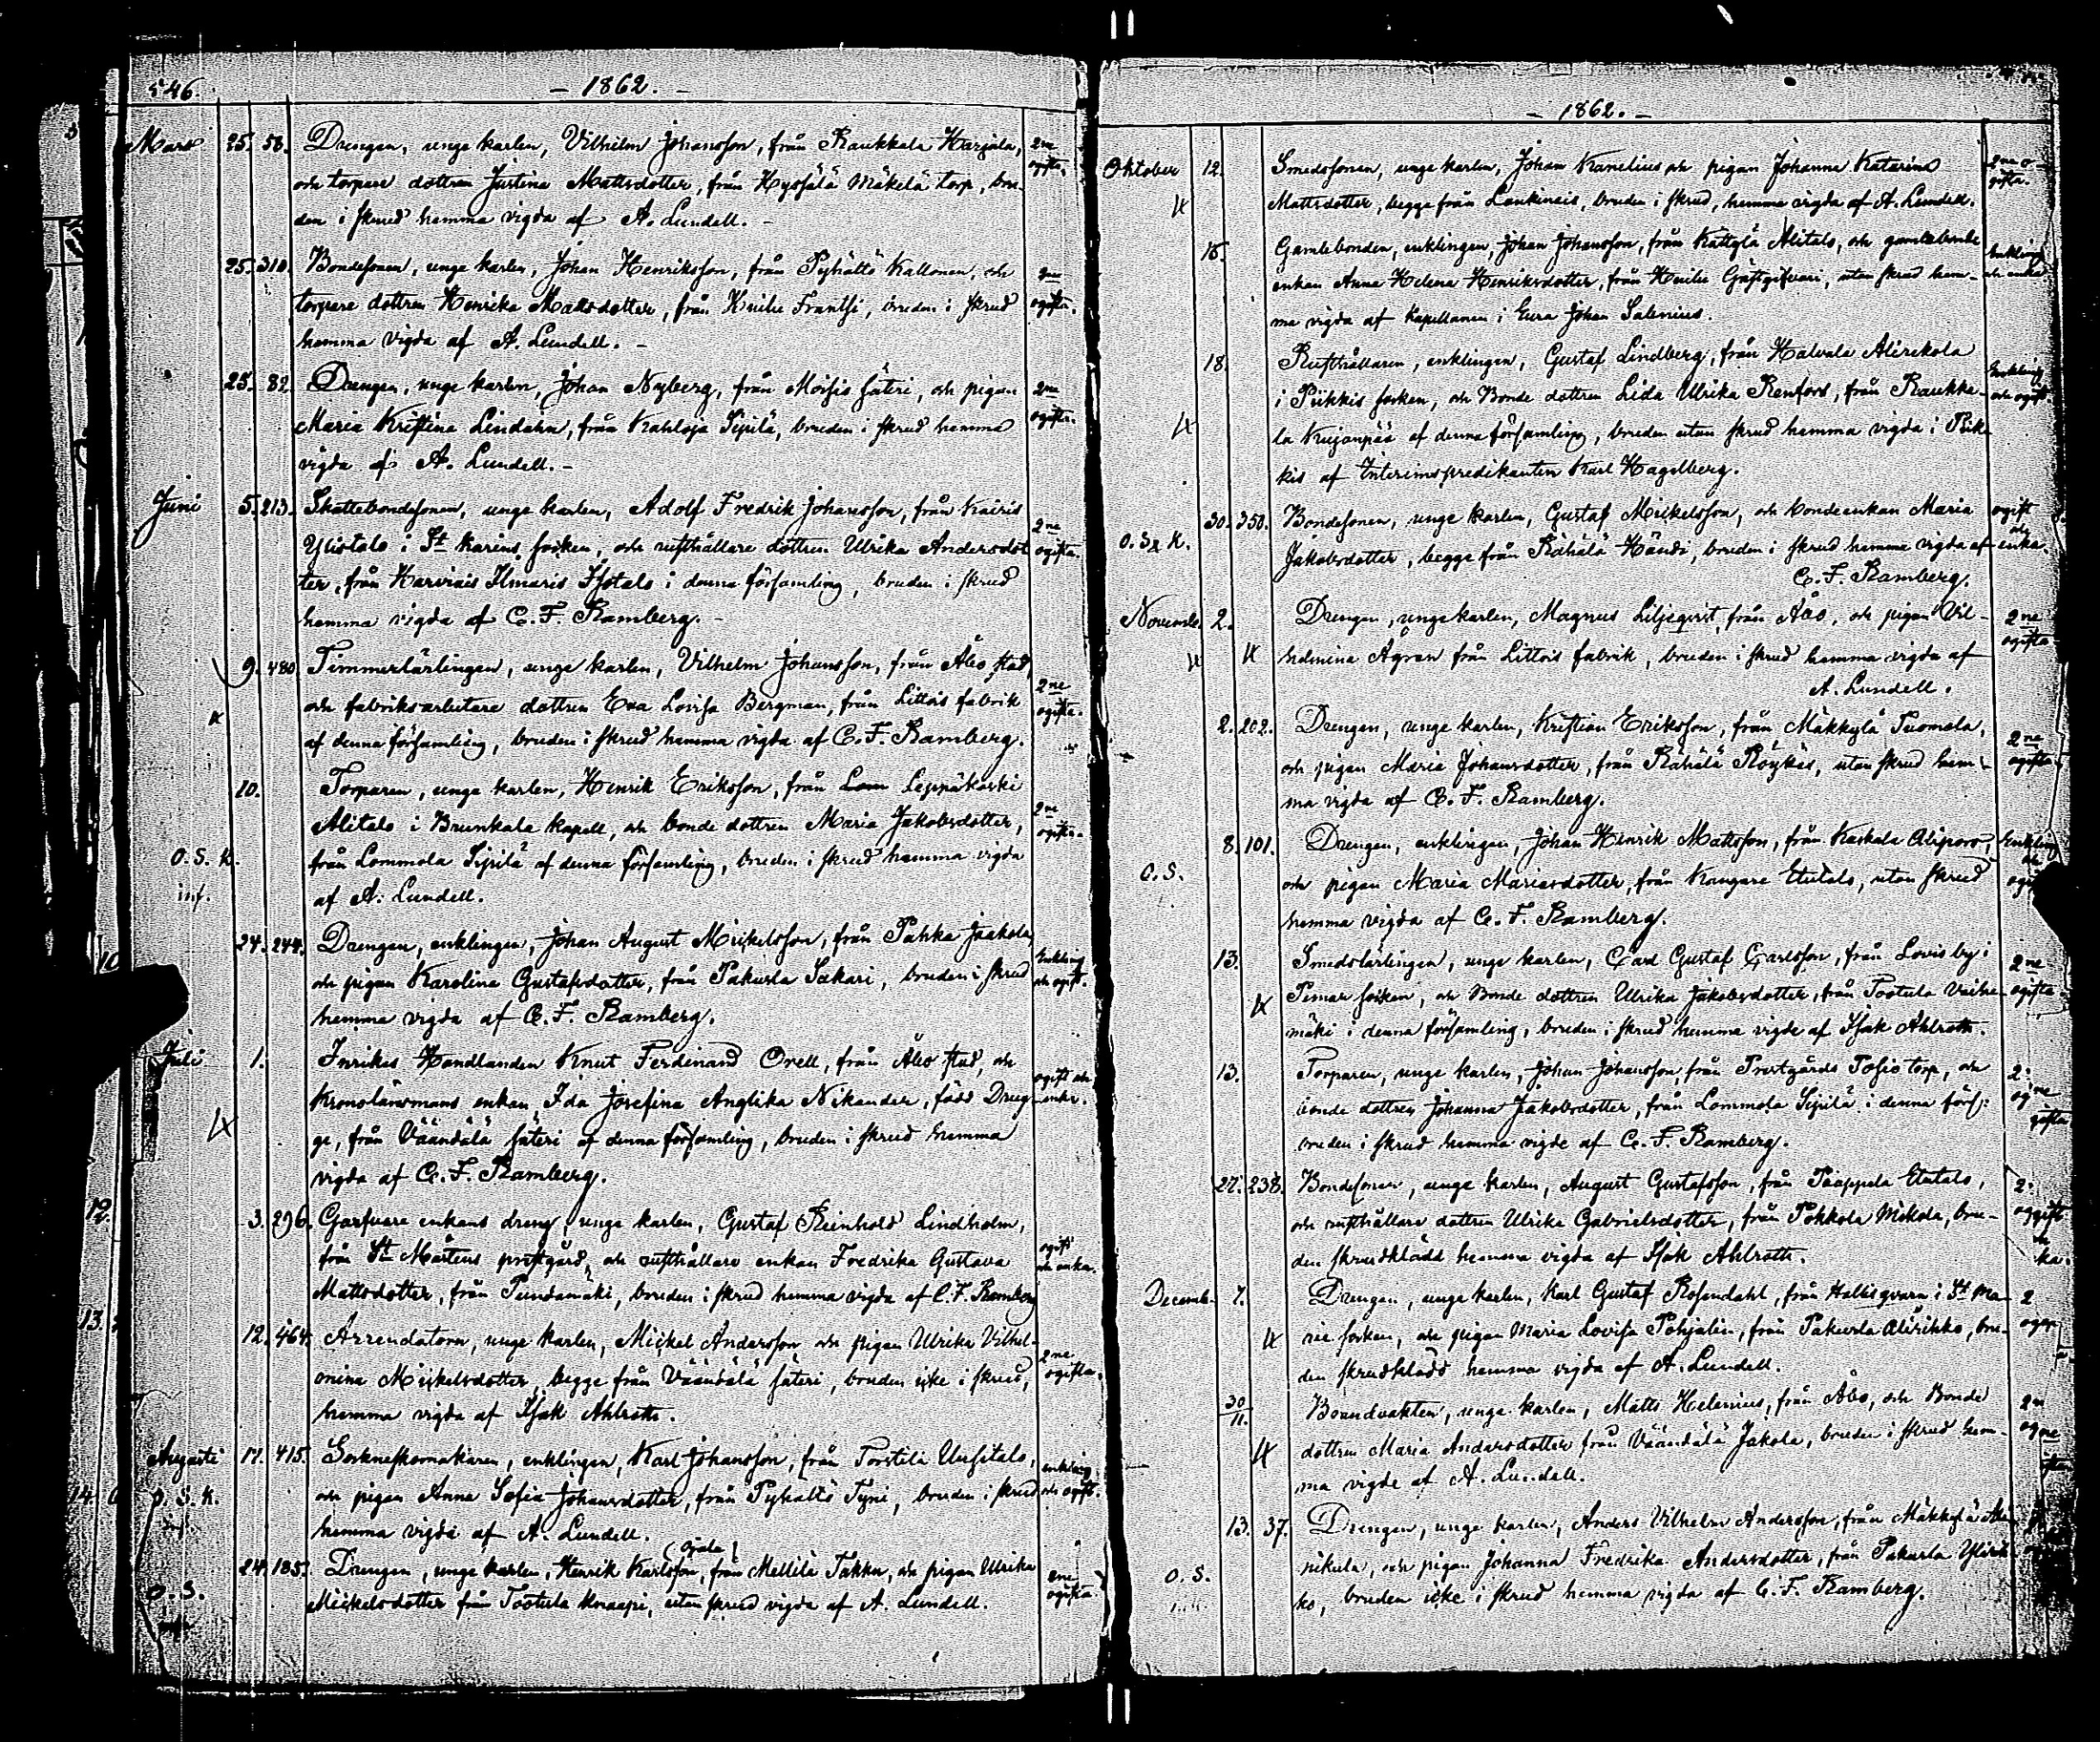 546. — 1862. —
Mars 25. 58. Drengen, unge karlen, Vilhelm Johansson, från Raukkala Harjula, 2ne
och torpare dottren Justina Mattsdotter, från Hyssälä Mäkelä torp, bru- ogifta.
den i skrud hemma vigda af A. Lundell. —
25. 310. Bondesonen, unge karlen, Johan Henriksson, från Pyhältö Kallonen, och 2ne
torpare dottren Henrika Mattsdotter, från Huilu Frantsi, bruden i skrud ogifta.
hemma vigda af A. Lundell. —
25. 82. Drengen, unge karlen, Johan Nyberg, från Moisis säteri, och pigan 2ne
Maria Kristina Lindahn, från Kahloja Sipilä, bruden i skrud hemma ogifta.
vigda af A. Lundell. —
Juni 5. 213. Skattebondesonen, unge karlen, Adolf Fredrik Johansson, från Kairis
Ylistalo i St Karins socken, och rusthållare dottren Ulrika Andersdot 2ne ogifta.
ter, från Karviais Ilmaris Isotalo i denna församling, bruden i skrud
hemma vigda af C. F. Ramberg. —
9. 480. Timmerlärlingen, unge karlen, Vilhelm Johansson, från Åbo stad,
och fabriksarbetare dottren Eva Lovisa Bergman, från Littois fabrik 2ne ogifta.
af denna församling, bruden i skrud hemma vigda af C. F. Ramberg.
10. Torparen, unge karlen, Henrik Eriksson, från Leppäkoski
Alitalo i Brunkala kapell, och bonde dottren Maria Jakobsdotter, 2ne ogifta.
O. S. K. från Lommola Sipilä af denna församling, bruden i skrud hemma vigda
inf. af A. Lundell.
24. 244. Drengen, enklingen, Johan August Mickelsson, från Pahka Jaakola,
och pigan Karolina Gustafsdotter, från Pakurla Sakari, bruden i skrud Enkling och ogift.
hemma vigda af C. F. Ramberg.
Juli 1. Inrikes Handlanden Knut Ferdinand Orell, från Åbo stad, och
Kronolänsmans enkan Ida Josefina Anglika Nikander, född Drug- ogift och enka.
ge, från Väändälä säteri af denna församling, bruden i skrud hemma
vigda af C. F. Ramberg.
3. 296. Garfvare enkans dreng, unge karlen, Gustaf Reinhold Lindholm,
från St Mårtens prestgård, och rusthållare enkan Fredrika Gustava ogift och enka.
Mattsdotter, från Pundamäki, bruden i skrud hemma vigda af C. F. Ramberg
12. 464. Arrendatorn, unge karlen, Mickel Andersson och pigan Ulrika Vilhel-
mina Mickelsdotter, begge från Väändälä säteri, bruden icke i skrud, 2ne ogifta.
hemma vigda af Isak Ahlroth.
Augusti 17. 415. Sockneskomakaren, enklingen, Karl Johansson, från Torstila Uusitalo, enkling
O. S. K. och pigan Anna Sofia Johansdotter, från Pyhältö Tyni, bruden i skrud och ogift.
hemma vigda af A. Lundell.
(Ojala)
24. 185. Drengen, unge karlen, Henrik Karlsson, från Mellilä Takku, och pigan Ulrika 2ne
O. S. Mickelsdotter från Tootula Knaapi, utan skrud vigda af A. Lundell. ogifta.
— 1862. —
Oktober 12. Smedssonen, unge karlen, Johan Kanelius och pigan Johanna Katarina 2ne o-
Mattsdotter, begge från Lankinais, bruden i skrud, hemma vigda af A. Lundell. gifta.
15. Gamlebonden, enklingen, Johan Johansson, från Kättylä Alitalo, och gamlebonde Enkling
enkan Anna Helena Henriksdotter, från Huilu Gästgifvari, utan skrud hem- och enka
ma vigda af Kapellanen i Eura Johan Salenius.
18. Rusthållaren, enklingen, Gustaf Lindberg, från Halvala Alirekola
i Piikkis socken, och Bonde dottren Lida Ulrika Renfors, från Raukka- Enkling och ogift
la Kujanpää af denna församling, bruden utan skrud hemma vigda i Piik
kis af Interimspredikanten Karl Hagelberg.
30. 350. Bondesonen, unge karlen, Gustaf Mickelsson, och bondeenkan Maria ogift
Jakobsdotter, begge från Rähälä Händi, bruden i skrud hemma vigda af och enka.
C. F. Ramberg.
Novemb. 2. Drengen, unge karlen, Magnus Liljeqvist, från Åbo, och pigan Vil- 2ne
helmina Ågren från Littois fabrik, bruden i skrud hemma vigda af ogifta
A. Lundell.
2. 202. Drengen, unge karlen, Kristian Eriksson, från Mäkkylä Tuomola,
och pigan Maria Johansdotter, från Rähälä Röykäs, utan skrud hem- 2ne ogifta
ma vigda af C. F. Ramberg.
8. 101. Drengen, enklingen, Johan Henrik Mattsson, från Kaskala Aliporo, Enkling
O. S. och pigan Maria Mariasdotter, från Kangare Etutalo, utan skrud
hemma vigda af C. F. Ramberg.
13. Smedslärlingen, unge karlen, Carl Gustaf Carlsson, från Lovis by i 2ne
Pemar socken, och Bonde dottren Ulrika Jakobsdotter, från Tootula Vaihe- ogifta
mäki i denna församling, bruden i skrud hemma vigde af Isak Ahlroth.
13. Torparen, unge karlen, Johan Johansson, från Prestgårds Tosio torp, och
bonde dottren Johanna Jakobsdotter, från Lommola Sipilä i denna förs:
bruden i skrud hemma vigde af C. F. Ramberg.
27. 238. Bondesonen, unge karlen, August Gustafsson, från Paappela Etutalo,
och rusthållare dottren Ulrika Gabrielsdotter, från Pokkola Mikola, bru-
den skrudklädd hemma vigda af Isak Ahlroth.
Decemb. 7. Drengen, unge karlen, Karl Gustaf Rosendahl, från Hallisqvarn i St Ma-
rie socken, och pigan Maria Lovisa Pohjalin, från Pakurla Alirikko, bru-
den skrudklädd hemma vigda af A. Lundell.
30/11. Brandvakten, unge karlen, Matts Helenius, från Åbo, och Bonde
dottren Maria Andersdotter från Väändälä Jakola, bruden i skrud hem-
ma vigde af A. Lundell.
13. 37. Drengen, unge karlen, Anders Vilhelm Andersson, från Mäkkylä
O. S. nikula, och pigan Johanna Fredrika Andersdotter, från Pakurla Ylirik-
ko, bruden icke i skrud hemma vigda af C. F. Ramberg.